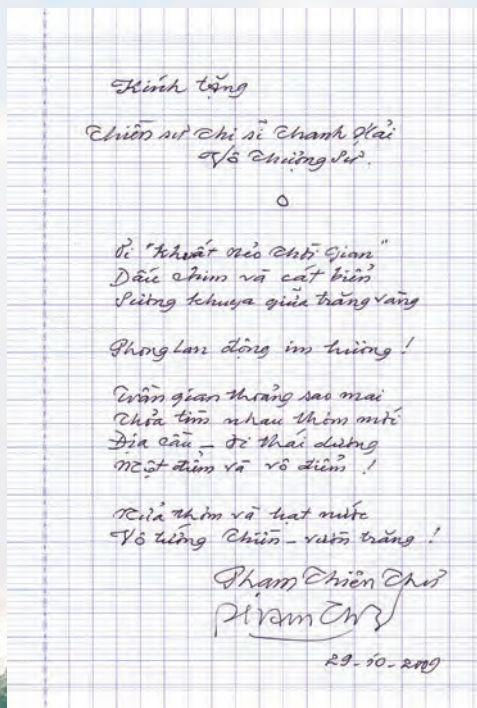 Kính tặng
Thiền sư Thi sĩ Thanh Hải
Vô Thượng Sư.
Đi "Khuất nẻo Thời Gian"
Dấu chim và cát biển
Sương khuya giữa trăng vàng
Phong Lan động im hương !
Trần gian thoảng sao mai
tìm nhau thơm
Địa cầu - đi thái dương
Một điểm và vô điểm !
và hạt nước
Vô tướng Thiền - vườn trăng !
Phạm Thiên Thư
29-10-2009